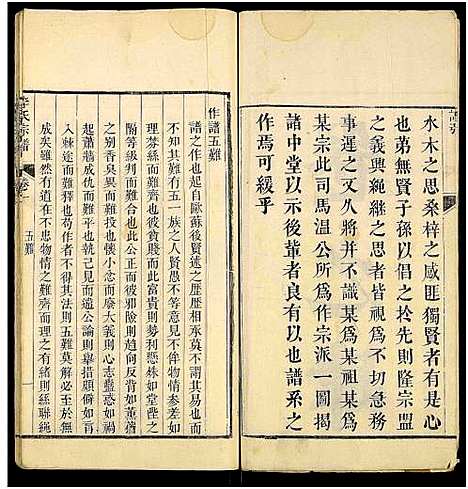 水木之思桑梓之感匪獨賢者有是心
也弟無賢子孫以倡之於先則隆宗盟
之義興繩繼之思者視為不切急務
事遲之又久將并不識某為某祖某為
某宗此司馬溫公所為作宗派一圖揭
諸中堂以示後輩者良有以也譜系之
作焉可緩乎
作譜五難
譜之作也起自歐蘇後賢述之歷歷相承莫不詳
知不知其難有五一族之人賢愚不等物情參差如
理棼絲而難齊也彼貧賤而此富貴則勢利懸殊如堂陛之
隔等而難親也此公正而彼邪險則趨向反背如薰蕕
之別香臭異而難投也樓小忿而廢大義則心志齟齬
起蕭牆成仇而難和也執己見而違公論則舉措頗僻如苗
入棘途而難釋也苟作者不得其法則五難莫解必不可
成矣雖然有道在不忠物情之難齊而理之則絲聯繩
氏宗譜
卷一
五難